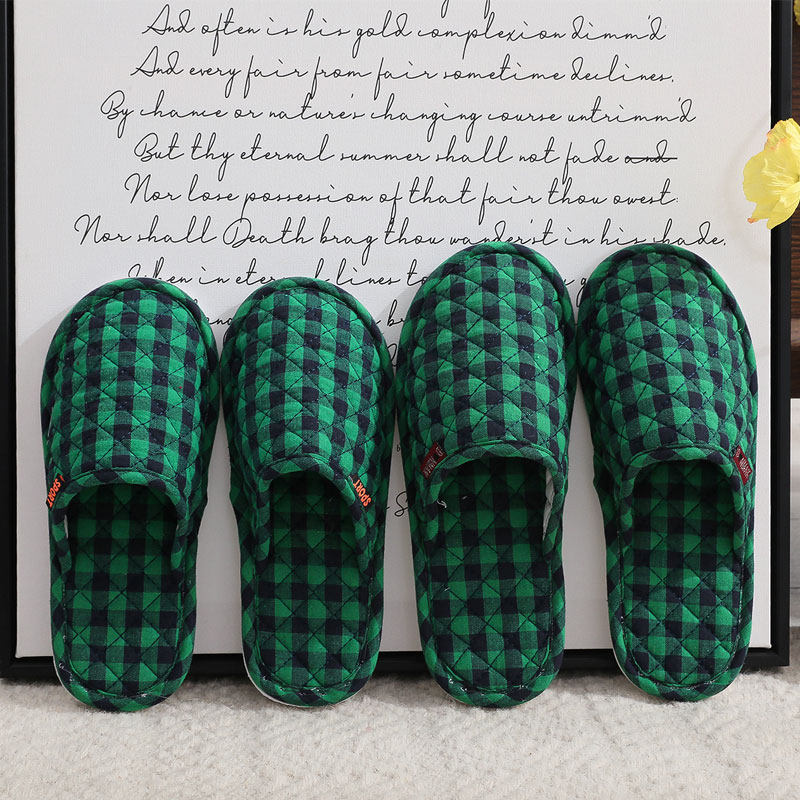 And often is his gold complexion dimm'd
And every fair from fair sometime declines,
By chance or nature's changing course untrimm'd
But thy eternal summer shall not fade and
Nor lose possession of that fair thou owest:
Nor shall Death brag thou wander'st in his shade,
When in eternal lines to
SPORT
SPORT